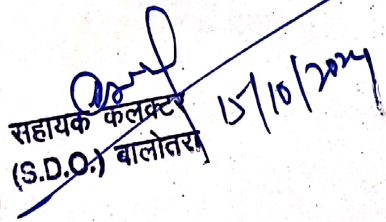 सहायक कलक्टर
(S.D.O.) बालोतरा
15/10/2024